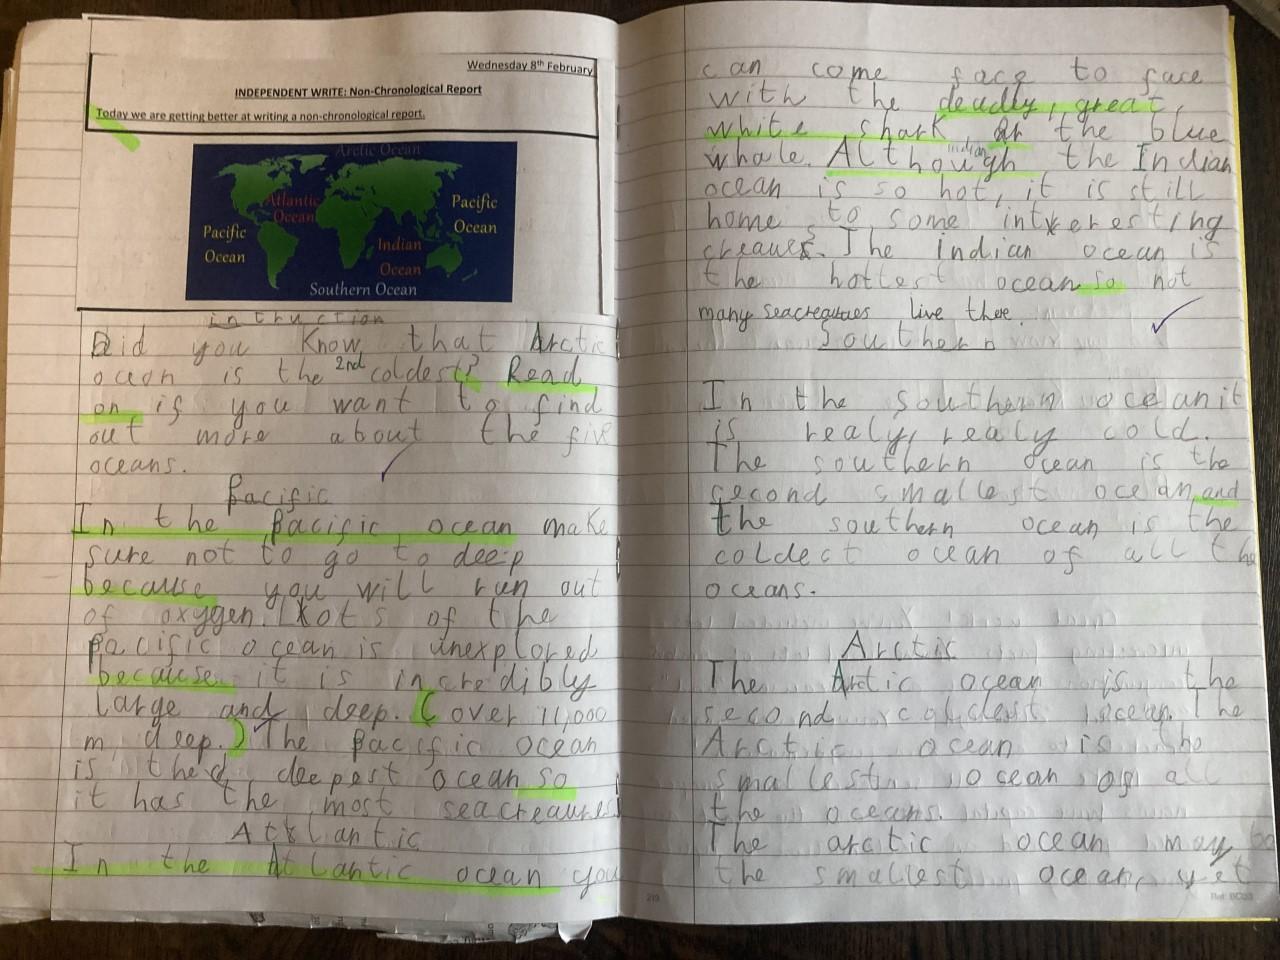 Wednesday 8th February
INDEPENDENT WRITE: Non-Chronological Report
Today we are getting better at writing a non-chronological report.
Arctic Ocean
Atlantic
Ocean
Pacific
Ocean
Pacific
Ocean
Indian
Ocean
Southern Ocean
intruction
Did you know that Arctic
ocean is the 2nd coldest? Read
on if you want to find
out more about the five
oceans.
Pacific
In the pacific ocean make
sure not to go to deep
because you will run out
of oxygen. Lots of the
pacific ocean is unexplored
because it is incredibly
large and deep. (over 11,000
m deep.) The pacific ocean
is the deepest ocean so
it has the most seacreaures
Atlantic
In the Atlantic ocean you
can come face to face
with the deadly, great,
white shark or the blue
whale. Although the Indian
indian
ocean is so hot, it is still
home to some interesting
creaues. The indian ocean is
the hottest ocean so not
many seacreatues live there.
Southern
In the southern ocean it
is realy, realy cold.
The southern ocean is the
second smallest ocean and
the southern ocean is the
coldect ocean of all the
oceans.
Arctic
The Arctic ocean is the
second coldest ocean. The
Arctic ocean is the
smallest ocean of all
the oceans.
The arctic ocean may be
the smallest ocean, yet
219